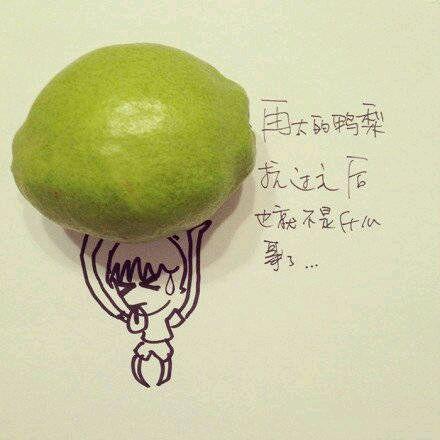 再大的鸭梨
扛过之后
也就不是什么
事了...